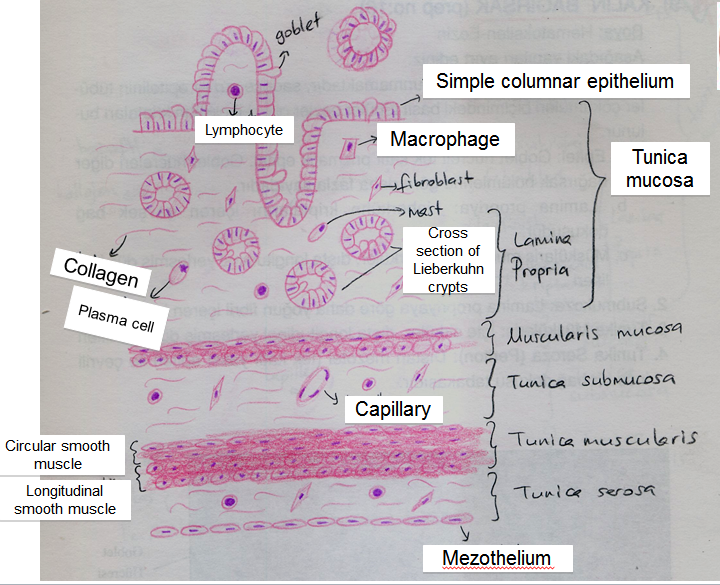 goblet
Simple columnar epithelium
Lymphocyte
Macrophage
Tunica
mucosa
fibroblast
mast
Cross
section of
Lieberkuhn
crypts
Lamina
Propria
Collagen
Plasma cell
Muscularis mucosa
Tunica submucosa
Capillary
Circular smooth
muscle
Tunica muscularis
Longitudinal
smooth muscle
Tunica serosa
Mezothelium